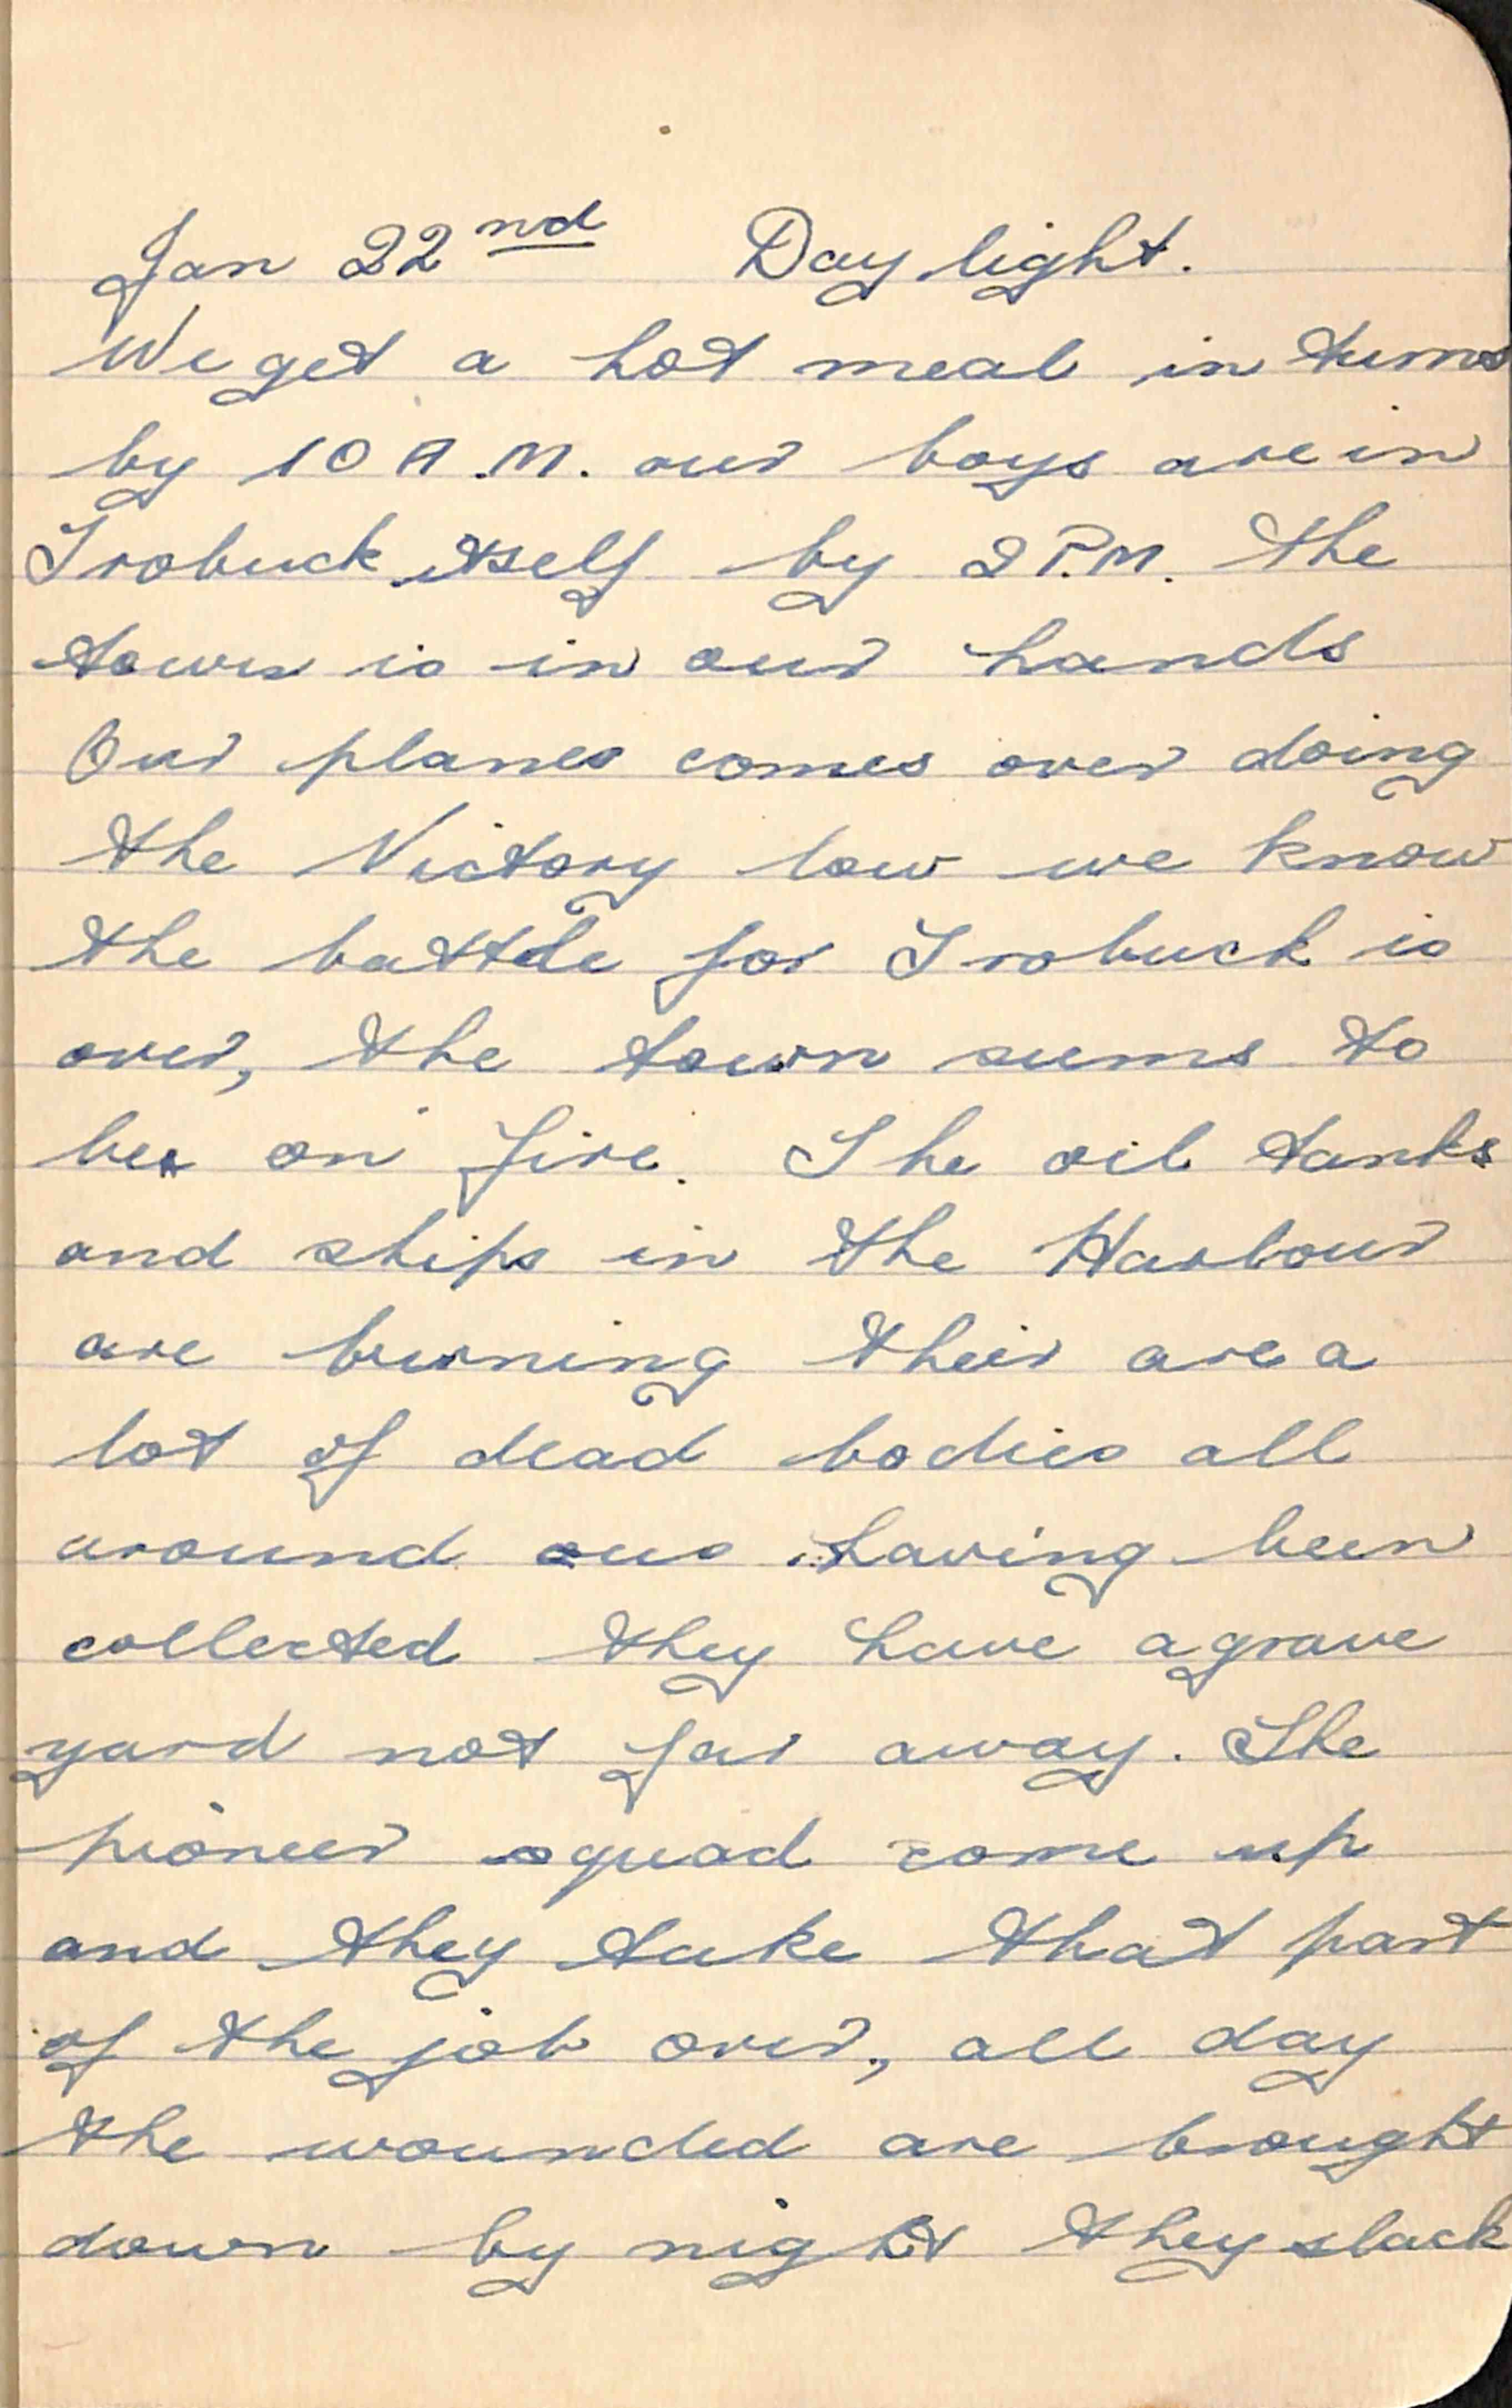 Jan 22nd Day light.
We get a hot meal in turns
by 10 A.M. our boys are in
Trobuck itself by 2 P.M. the
town is in our hands
Our planes comes over doing
the Victory low we know
the battle for Trobuck is
over, the town seems to
be on fire. The oil tanks
and ships in the Harbour
are burning their are a
lot of dead bodies all
around us having been
collected they have a grave
yard not far away. The
pioneer squad come up
and they take that part
of the job over, all day
the wounded are brought
down by night they slack